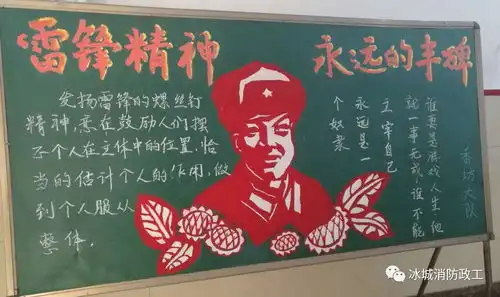 雷锋精神 永远的丰碑
发扬雷锋的螺丝钉
精神,意在鼓励人们摆
正个人在立体中的位置,恰
当的估计个人的作用,做
到个人服从
整体.
谁要是游戏人生他
就一事无成,谁不能
主宰自己
永远是一
个奴隶
香坊大队
冰城消防政工